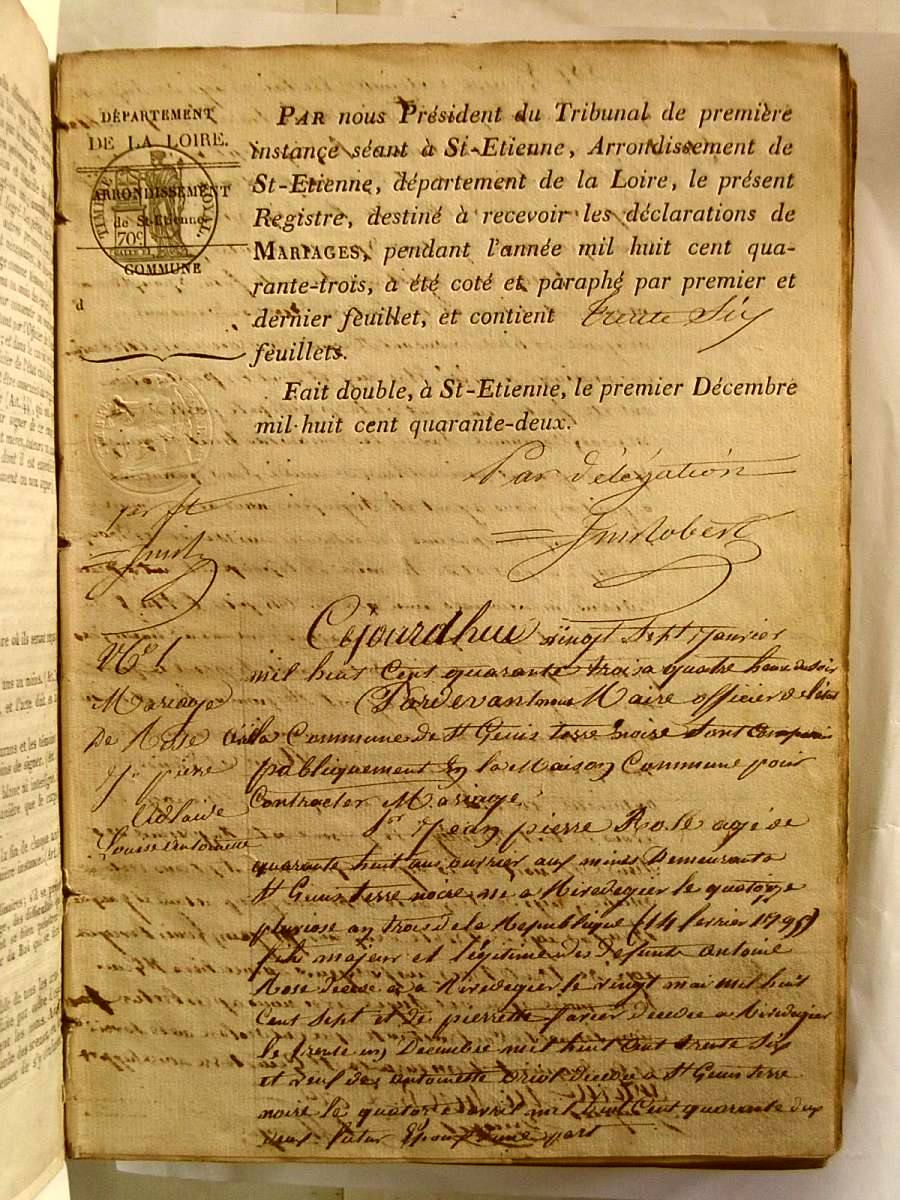 DÉPARTEMENT
DE LA LOIRE.
ARRONDISSEMENT
de St-Etienne
COMMUNE
d
TIMBRE ROYAL.
70c
PAR nous Président du Tribunal de première
instance séant à St-Etienne, Arrondissement de
St-Etienne, département de la Loire, le présent
Registre, destiné à recevoir les déclarations de
MARIAGES, pendant l'année mil huit cent qua-
rante-trois, a été coté et paraphé par premier et
dernier feuillet, et contient trente Six
feuillets.
Fait double, à St-Etienne, le premier Décembre
mil-huit cent quarante-deux.
Par délégation
No 1
Mariage
De Rose
Jn pierre
Adlaide
Cejourdhui vingt Sept Janvier
mil huit Cent quarante trois a quatre heure du soir
Pardevant nous Maire officier de l'état
la Commune de St Genis terre noire Sont Comparus
publiquement En la Maison Commune pour
Contracter Mariage
Sr Jean pierre Rose agé de
quarante huit ans ouvrier aux mines Demeurant a
St Genis terre noire né a Rivedegier le quatorze
pluviose an trois de la Republique (14 fevrier 1795)
fils majeur et légitime des défunts antoine
Rose décédé a Rivedegier le vingt mai mil huit
Cent Sept et de pierrette décédée a Rivedegier
le trente un Decembre mil huit Cent trente Six
et veuf de antoinette décédée a St Genis terre
noire le quatorze avril mil huit Cent quarante deux
futur Epoux d'une part